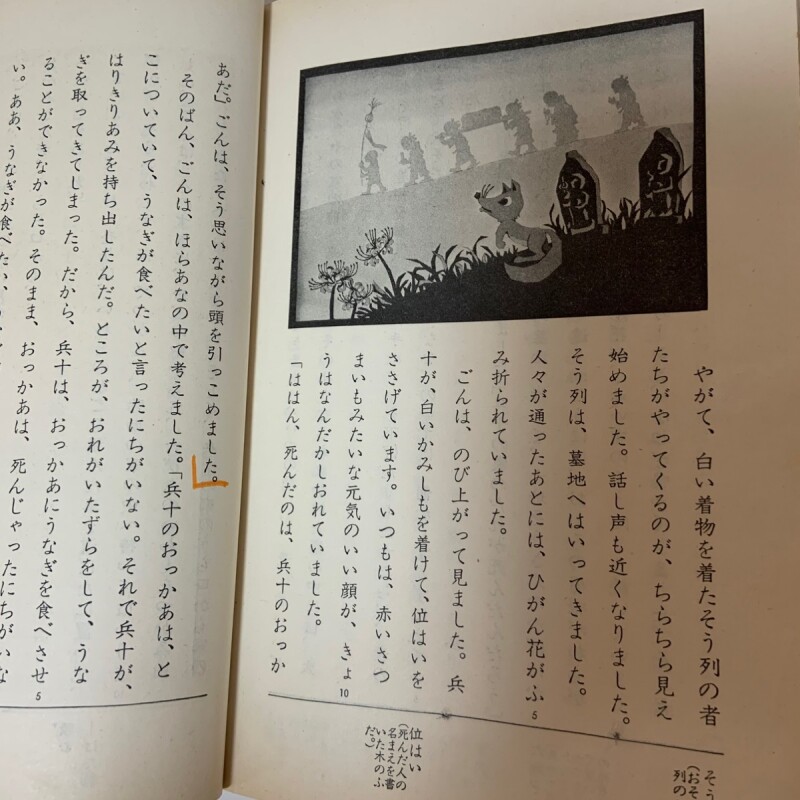 やがて、白い着物を着たそう列の者
たちがやってくるのが、ちらちら見え
始めました。話し声も近くなりました。
そう列は、墓地へはいってきました。
人々が通ったあとには、ひがん花がふ
5
み折られていました。
ごんは、のび上がって見ました。兵
十が、白いかみしもを着けて、位はいを
ささげています。いつもは、赤いさつ
まいもみたいな元気のいい顔が、きょ
10
うはなんだかしおれていました。
「ははん、死んだのは、兵十のおっか
そう
(おそ
列の
位はい
(死んだ人の
名まえを書
いた木のふ
だ。)
あだ。」ごんは、そう思いながら頭を引っこめました。
そのばん、ごんは、ほらあなの中で考えました。「兵十のおっかあは、と
こについていて、うなぎが食べたいと言ったにちがいない。それで兵十が、
はりきりあみを持ち出したんだ。ところが、おれがいたずらをして、うな
ぎを取ってきてしまった。だから、兵十は、おっかあにうなぎを食べさせ
5
ることができなかった。そのまま、おっかあは、死んじゃったにちがいな
い。ああ、うなぎが食べたい、